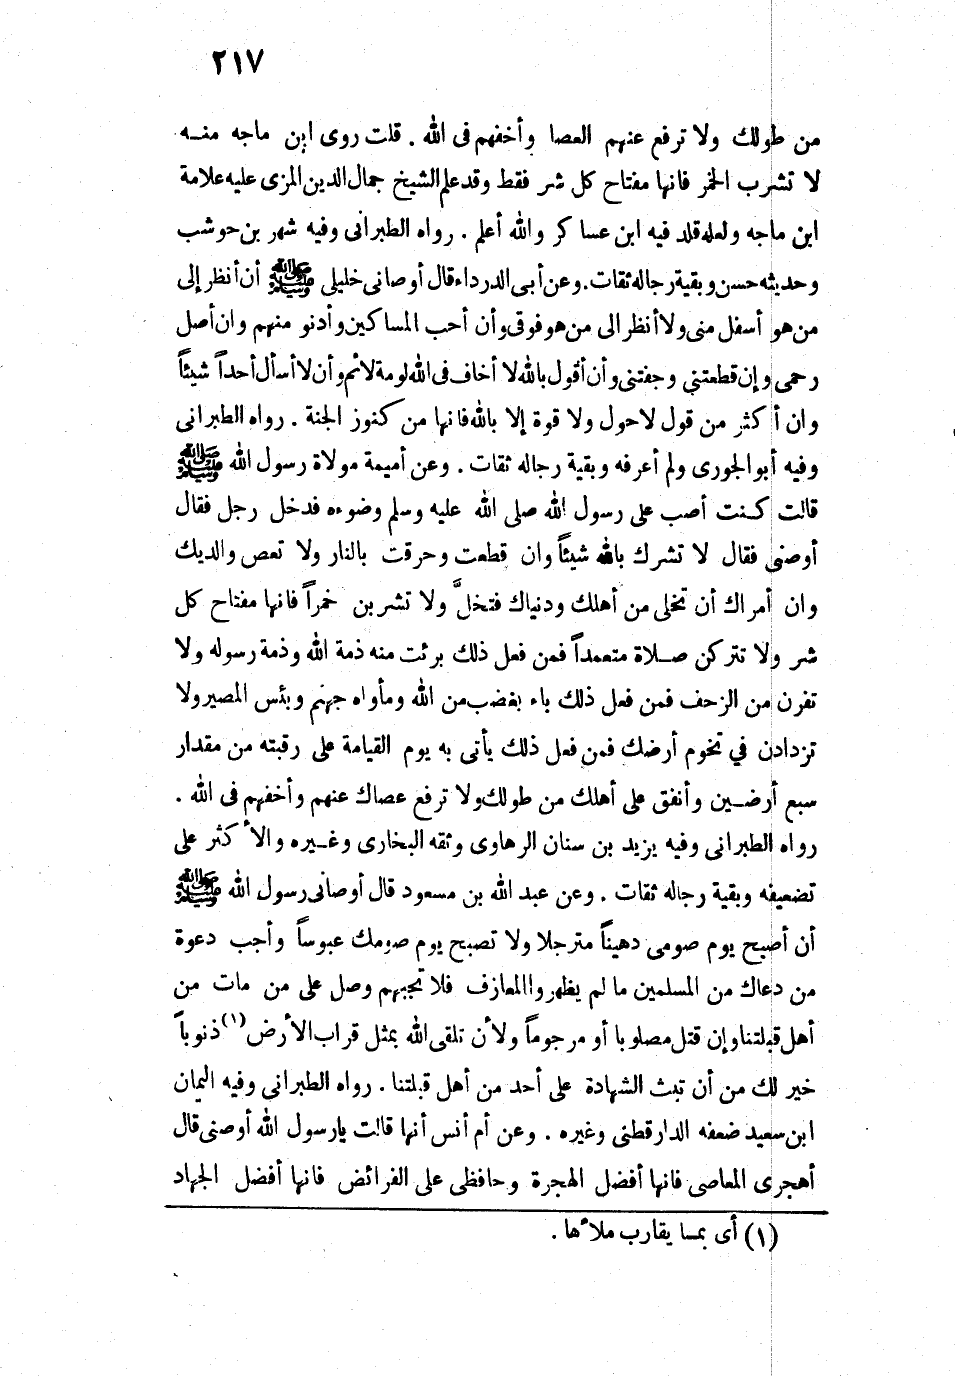 ٢١٧
من طولك ولا ترفع عنهم العصا وأخفهم فى الله . قلت روى ابن ماجه منه
لا تشرب الخمر فانها مفتاح كل شر فقط وقد علم الشيخ جمال الدين المزى عليه علامة
ابن ماجه ولعله قلد فيه ابن عساكر والله أعلم . رواه الطبرانى وفيه شهر بن حوشب
وحديثه حسن وبقية رجاله ثقات . وعن أبى الدرداء قال أوصانى خليلى ﷺ أن أنظر إلى
من هو أسفل منى ولا أنظر الى من هو فوقى وأن أحب المساكين وأدنو منهم وان أصل
رحمى وإن قطعتنى وجفتنى وأن أقول بالله لا أخاف فى الله لومة لائم وأن لا أسأل أحداً شيئاً
وان أكثر من قول لا حول ولا قوة إلا بالله فانها من كنوز الجنة . رواه الطبرانى
وفيه أبو الجورى ولم أعرفه وبقية رجاله ثقات . وعن أميمة مولاة رسول الله ﷺ
قالت كنت أصب على رسول الله صلى الله عليه وسلم وضوءه فدخل رجل فقال
أوصنى فقال لا تشرك بالله شيئاً وان قطعت وحرقت بالنار ولا تعص والديك
وان أمراك أن تخلى من أهلك ودنياك فتخلَّ ولا تشربن خمراً فانها مفتاح كل
شر ولا تتركن صلاة متعمداً فمن فعل ذلك برئت منه ذمة الله وذمة رسوله ولا
تفرن من الزحف فمن فعل ذلك باء بغضب من الله ومأواه جهنم وبئس المصير ولا
تزدادن في تخوم أرضك فمن فعل ذلك يأتى به يوم القيامة على رقبته من مقدار
سبع أرضين وأنفق على أهلك من طولك ولا ترفع عصاك عنهم وأخفهم فى الله .
رواه الطبرانى وفيه يزيد بن سنان الرهاوى وثقه البخارى وغيره والأكثر على
تضعيفه وبقية رجاله ثقات . وعن عبد الله بن مسعود قال أوصانى رسول الله ﷺ
أن أصبح يوم صومى دهيناً مترجلا ولا تصبح يوم صومك عبوساً وأجب دعوة
من دعاك من المسلمين ما لم يظهروا المعازف فلا تجبهم وصل على من مات من
أهل قبلتنا وإن قتل مصلوبا أو مرجوماً ولأن تلقى الله بمثل قراب الأرض(١) ذنوباً
خير لك من أن تبث الشهادة على أحد من أهل قبلتنا . رواه الطبرانى وفيه اليمان
ابن سعيد ضعفه الدارقطنى وغيره . وعن أم أنس أنها قالت يارسول الله أوصنى قال
أهجرى المعاصى فانها أفضل الهجرة وحافظى على الفرائض فانها أفضل الجهاد
(١) أى بمسا يقارب ملأها .